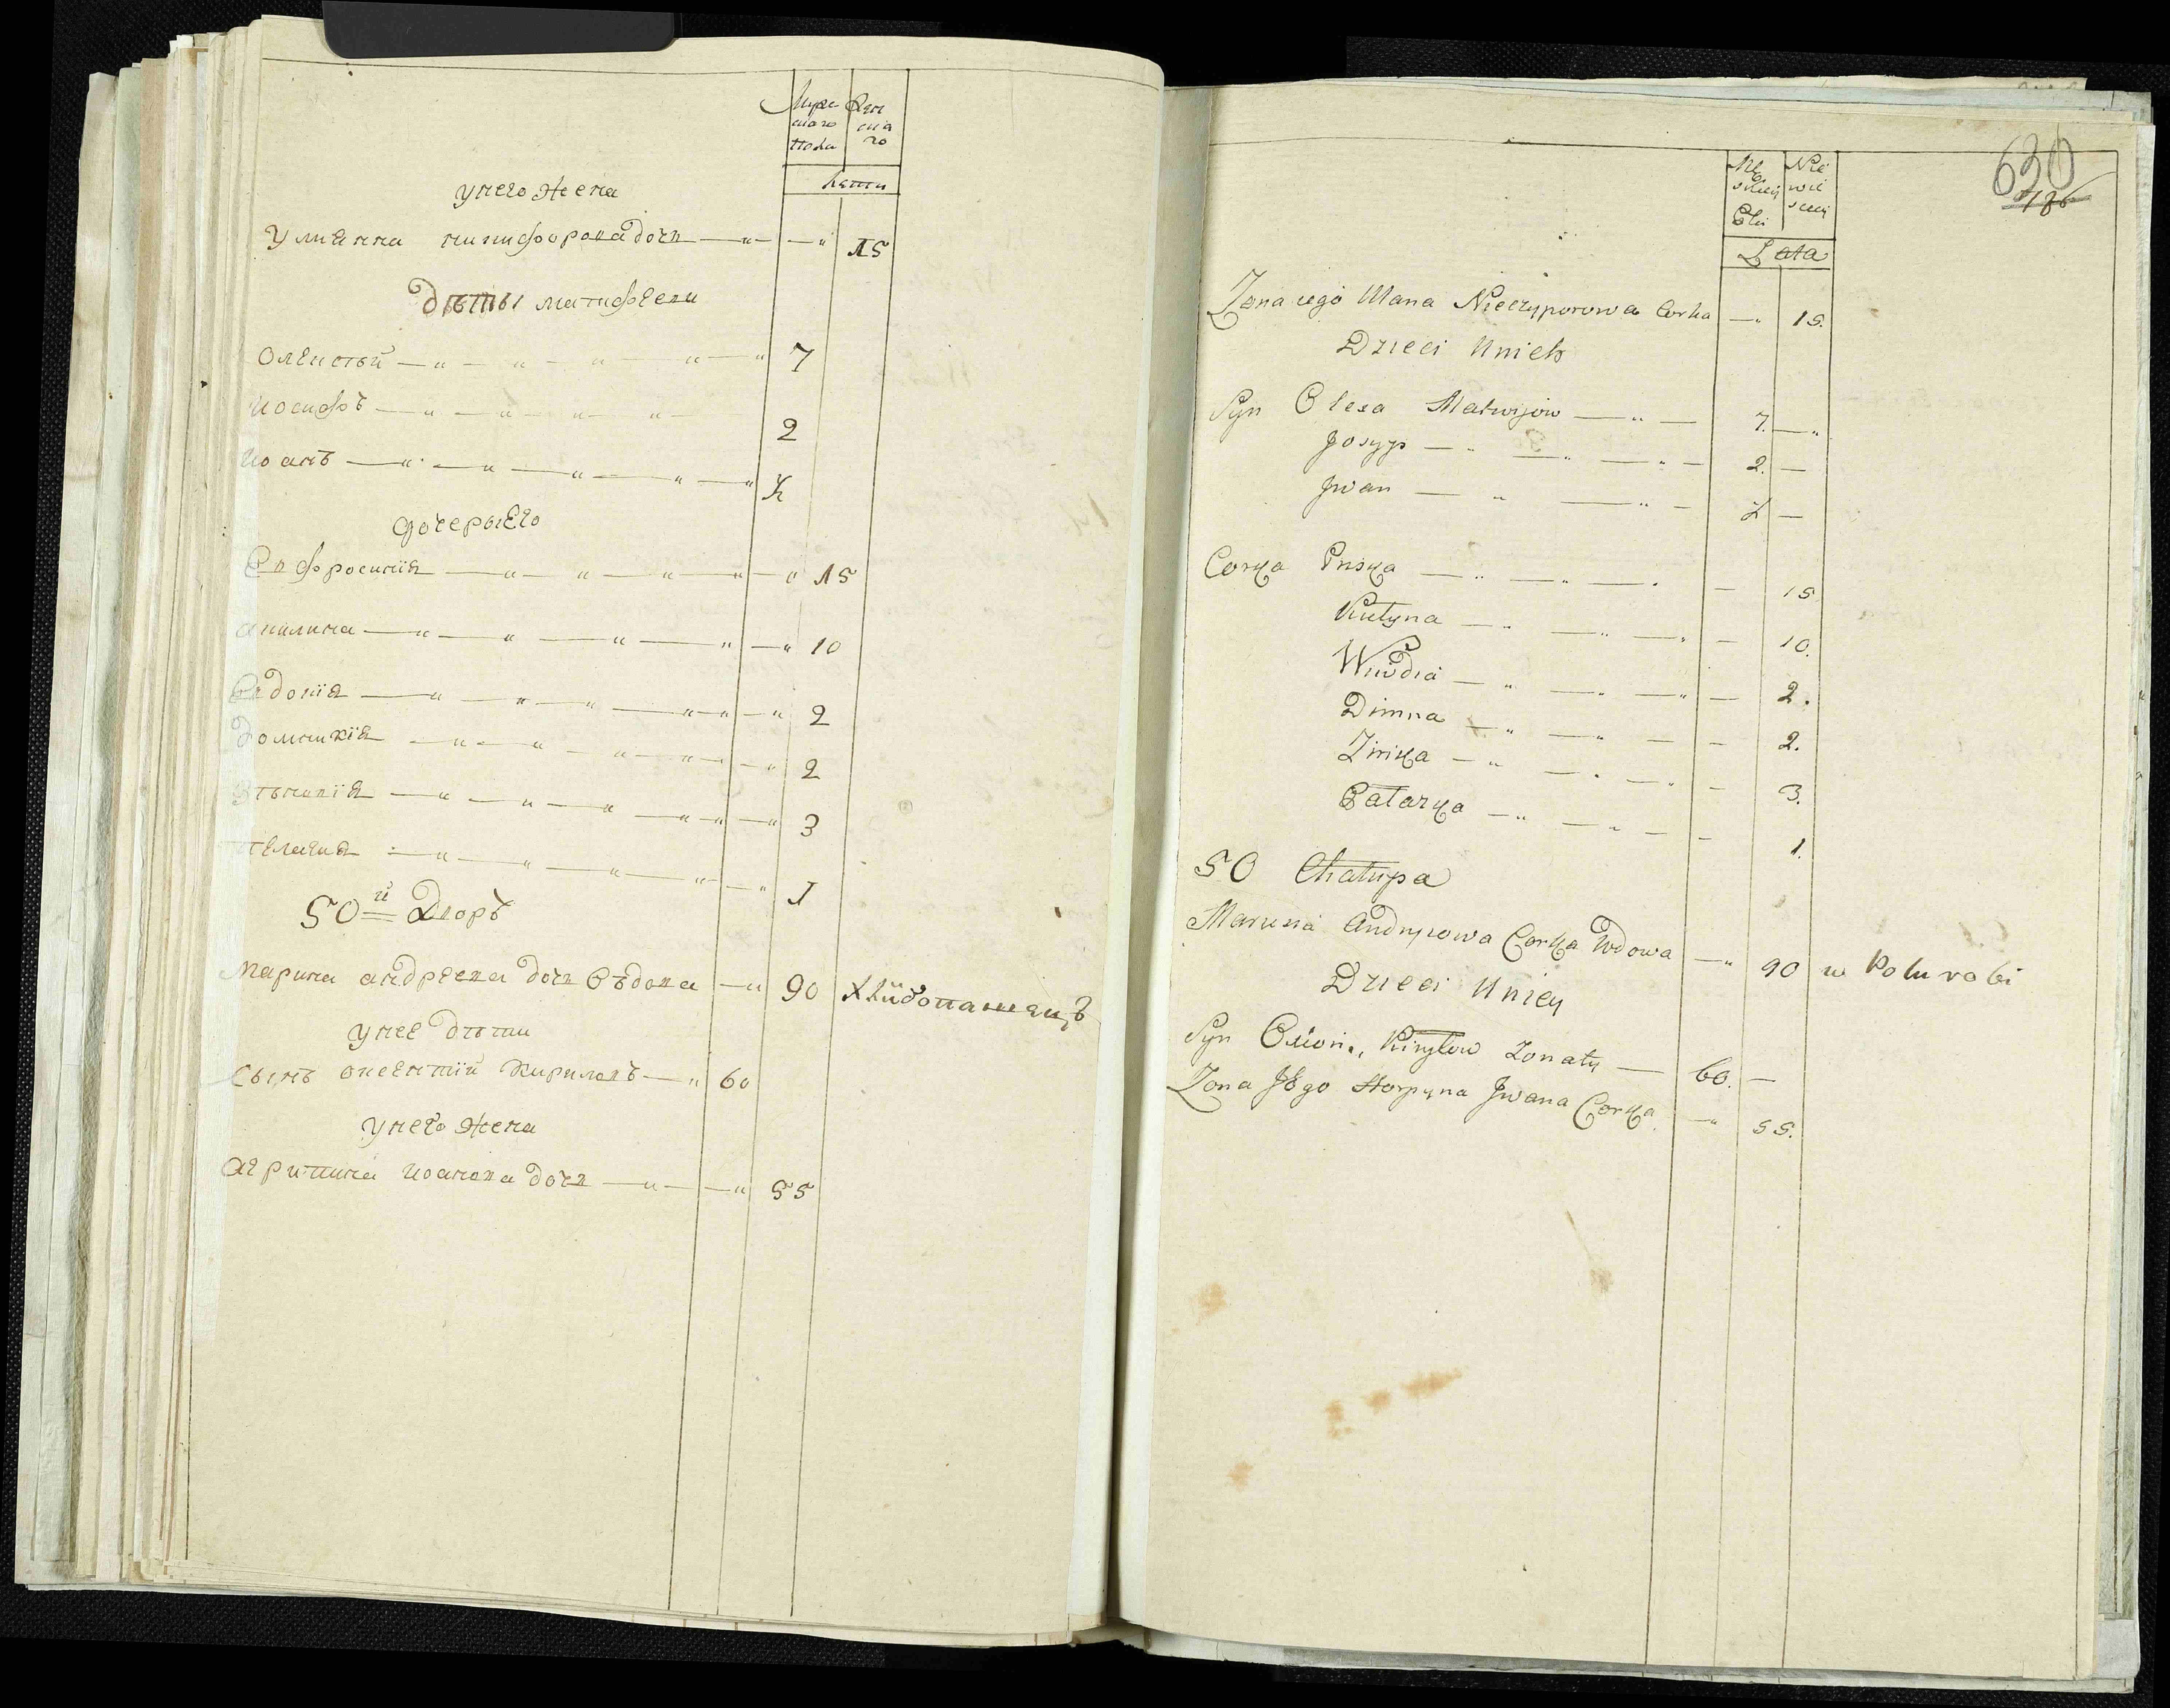 Мужескаго пола
Женскаго
Лѣти
у него жена
Улиянна никифорова дочь — " — " 15
Дѣты матифееви
Олексѣй — " — " — " — " 7
Иосифъ — " — " — " — " 2
Иоанъ — " — " — " — " — "
Дочеры его
Евфросиния — " — " — " — " — " 15
акилина — " — " — " — " — " 10
Евдокія — " — " — " — " — " 2
Домникія — " — " — " — " — " 2
— " — " — " — " — " 3
пелагия — " — " — " — " — " 1
50й Дворъ
Марина андреева дочь вѣдова — " 90 Хлибопашецъ
у нее дѣти
Сынъ Кириловъ — " 60
у него жена
Агрипина иоанова дочь — " — " 55
630
186
Męskiey Płci
Niewiesciey
Lata
Zona iego Ulana Nieczyporowa Corka — " 15.
Dzieci Unich
Syn Olexa Matwijow — " — 7. — "
Josyp — " — " — " — 2. —
Jwan — " — " — —
Corka Priska — " — " — " — 15
Kielyna — " — " — " — 10.
Wiwdia — " — " — " — 2.
Dimna — " — " — — 2.
Zinka — " — " — " — 3.
Palazka — " — " — — 1.
50 Chałupa
Marusia Andryiowa Corka Wdowa — " 90 w Polu robi
Dzieci Uniey
Syn Kiryłow Zonaty — 60. —
Zona Jego Horpyna Jwana Corka. — " 55.